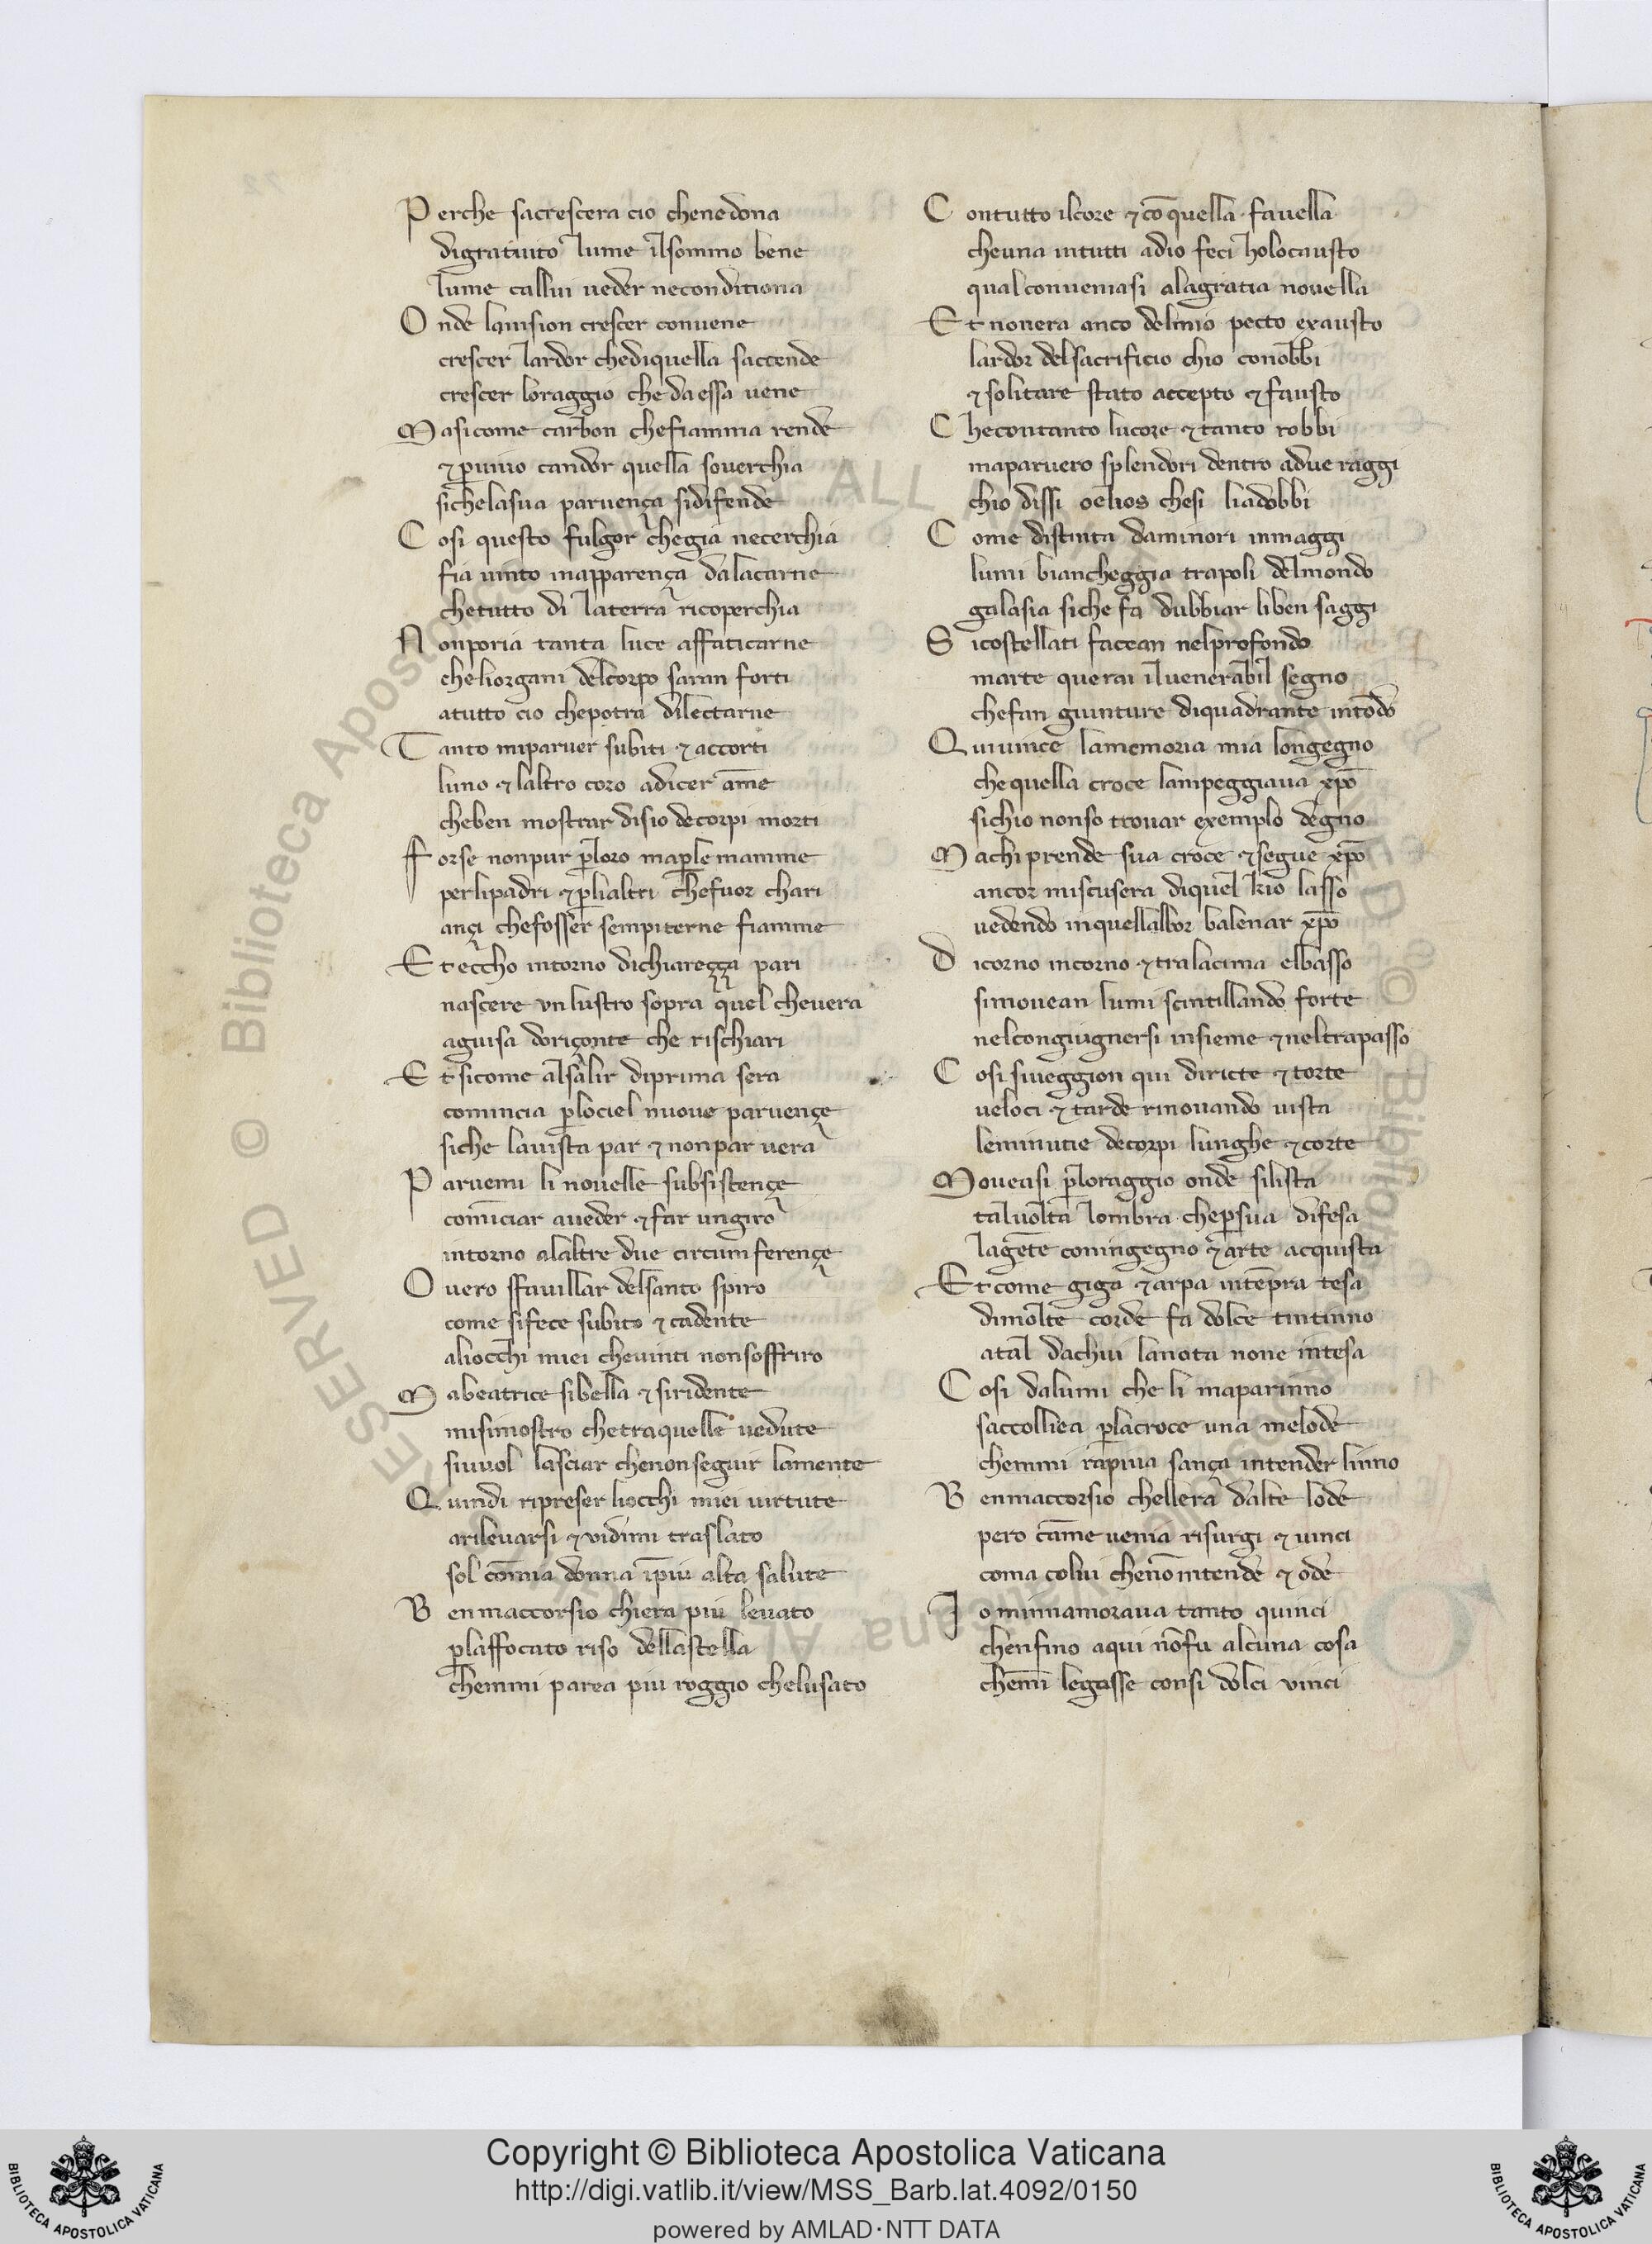 Perche sacrescera cio chenedona
digratiuito lume ilsommo bene
lume callui ueder neconditiona
Onde lauision crescer conuene
crescer lardor chediquella saccende
crescer loraggio che daessa uene
Masicome carbon chefiamma rende
⁊ ꝑuiuo candor quella souerchia
sichelasua paruença sidifende
Cosi questo fulgor chegia necerchia
fia uinto inapparença dalacarne
chetutto di laterra ricoperchia
Nonporia tanta luce affaticarne
cheliorgani delcorpo saran forti
atutto cio chepotra dilectarne
Tanto miparuer subiti ⁊ accorti
luno ⁊ laltro coro adicer am̄e
cheben mostrar disio decorpi morti
Forse nonpur ꝑloro maꝑle mamme
perlipadri ⁊ ꝑlialtri chefuor chari
ançi chefosser sempiterne fiamme
Et eccho intorno dichiareçça pari
nascere vn lustro sopra quel cheuera
aguisa doriçonte che rischiari
Et sicome alsalir diprima sera
comincia ꝑlociel nuoue paruençe
siche lauista par ⁊ nonpar uera
Paruemi li nouelle subsistençe
comīciar aueder ⁊ far ungiro
intorno alaltre due circumferençe
Ouero sfauillar delsanto spiro
come sifece subito ⁊ cadente
aliocchi miei cheuinti nonsoffriro
Mabeatrice sibella ⁊ siridente
misimostro chetraquelle uedute
siuuol lasciar chenonseguir lamente
Quindi ripreser liocchi miei uirtute
arileuarsi ⁊ uidimi traslato
sol cōmia donna īpiu alta salute
Benmaccorsio chiera piu leuato
ꝑlaffocato riso dellastella
chemmi parea piu roggio chelusato
Contutto ilcore ⁊ cō quella fauella
cheuna intutti adio feci holocausto
qual conueniasi alagratia nouella
Et nonera anco delmio pecto exausto
lardor delsacrificio chio conobbi
⁊ solitare stato accepto ⁊ fausto
Checontanto lucore ⁊ tanto robbi
maparuero splendori dentro adue raggi
chio dissi oelios chesi liadobbi
Come distinta daminori inmaggi
lumi biancheggia trapoli delmondo
galasia siche fa dubbiar liben saggi
Sicostellati facean nelprofondo
marte querai iluenerabil segno
chefan giunture diquadrante intōdo
Quiuince lamemoria mia longegno
chequella croce lampeggiaua xp̄o
sichio nonso trouar exemplo degno
Machi prende sua croce ⁊ segue xp̄o
ancor miscusera diquel kio lasso
uedendo inquellalbor balenar xp̄o
Dicorno incorno ⁊ tralacima elbasso
simouean lumi scintillando forte
nelcongiugnersi insieme ⁊ neltrapasso
Cosi siueggion qui diricte ⁊ torte
ueloci ⁊ tarde rinouando uista
leminutie decorpi lunghe ⁊ corte
Moueasi ꝑloraggio onde silista
taluolta lombra cheꝑsua difesa
lagēte coningegno ⁊ arte acquista
Et come giga ⁊ arpa intēpra tesa
dimolte corde fa dolce tintinno
atal dachui lanota none intesa
Cosi dalumi che li maparinno
saccolliea ꝑlacroce una melode
chemmi rapiua sança intender linno
Benmaccorsio chellera dalte lode
pero cāme uenia risurgi ⁊ uinci
coma colui chenōintende ⁊ ode
Iominnamoraua tanto quinci
chenfino aqui nōfu alcuna cosa
chemī legasse consi dolci vinci
© Biblioteca Apostolica Vaticana ALL RIGHTS RESERVED
Copyright © Biblioteca Apostolica Vaticana
http://digi.vatlib.it/view/MSS_Barb.lat.4092/0150
powered by AMLAD·NTT DATA
BIBLIOTECA APOSTOLICA VATICANA
BIBLIOTECA APOSTOLICA VATICANA